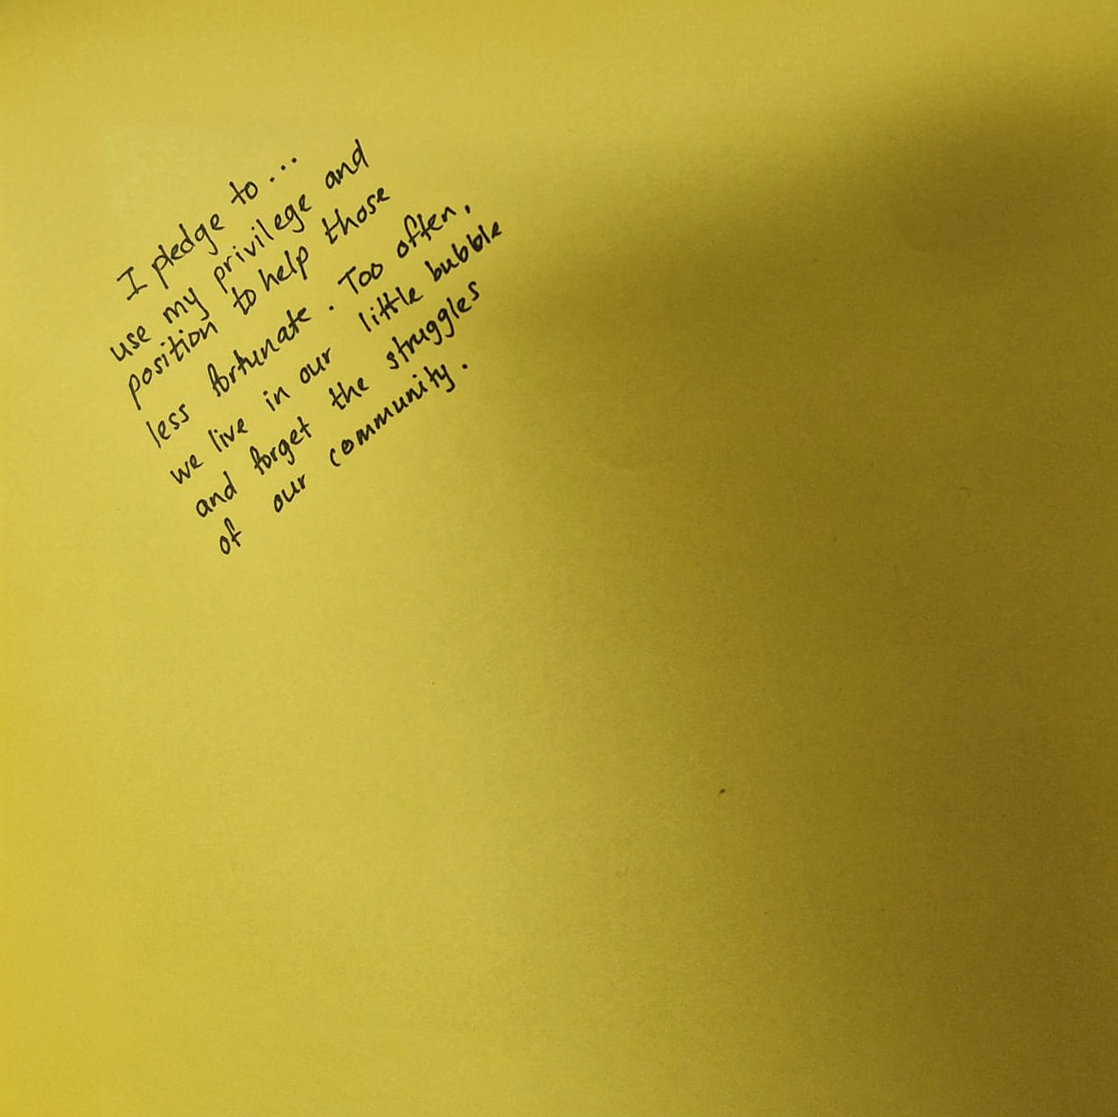 I pledge to...
use my privilege and
position to help those
less fortunate. Too often,
we live in our little bubble
and forget the struggles
of our community.